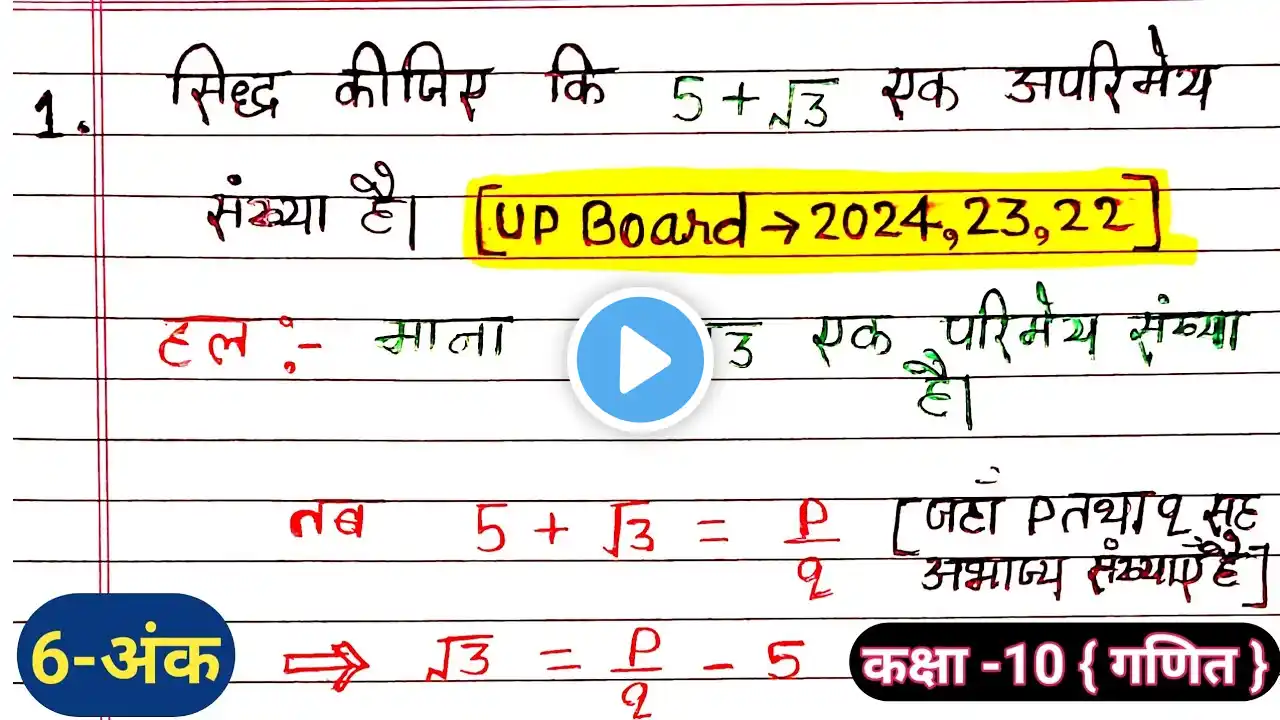 1. सिद्ध कीजिए कि 5 + √3 एक अपरिमेय
संख्या है। [UP Board → 2024, 23, 22]
हल :- माना √3 एक परिमेय संख्या
है।
तब 5 + √3 = p/q [जहाँ p तथा q सह
अभाज्य संख्याएँ है]
⇒ √3 = p/q - 5
6-अंक
कक्षा -10 { गणित }